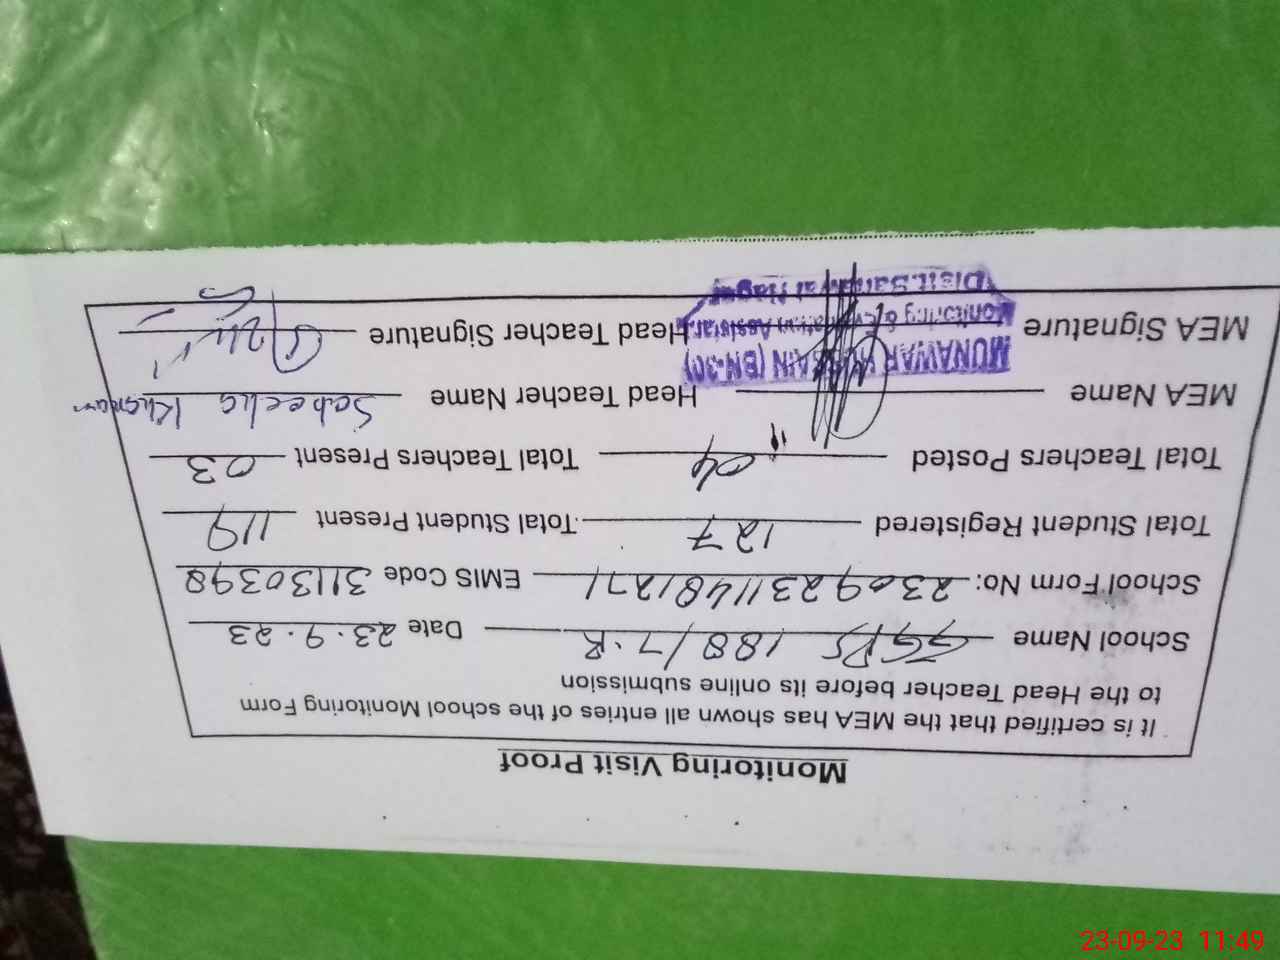 Monitoring Visit Proof
It is certified that the MEA has shown all entries of the school Monitoring Form
to the Head Teacher before its online submission
School Name GGPS 188/7.R Date 23.9.23
School Form No: 23092311481271 EMIS Code 31130398
Total Student Registered 127 Total Student Present 119
Total Teachers Posted 04 Total Teachers Present 03
MEA Name Head Teacher Name Sabeeha Khanam
MUNAWAR HUSSAIN (BN-30)
MEA Signature Head Teacher Signature
Monitoring & Evaluation Assistant
Distt. Bahawal Nagar
23-09-23 11:49